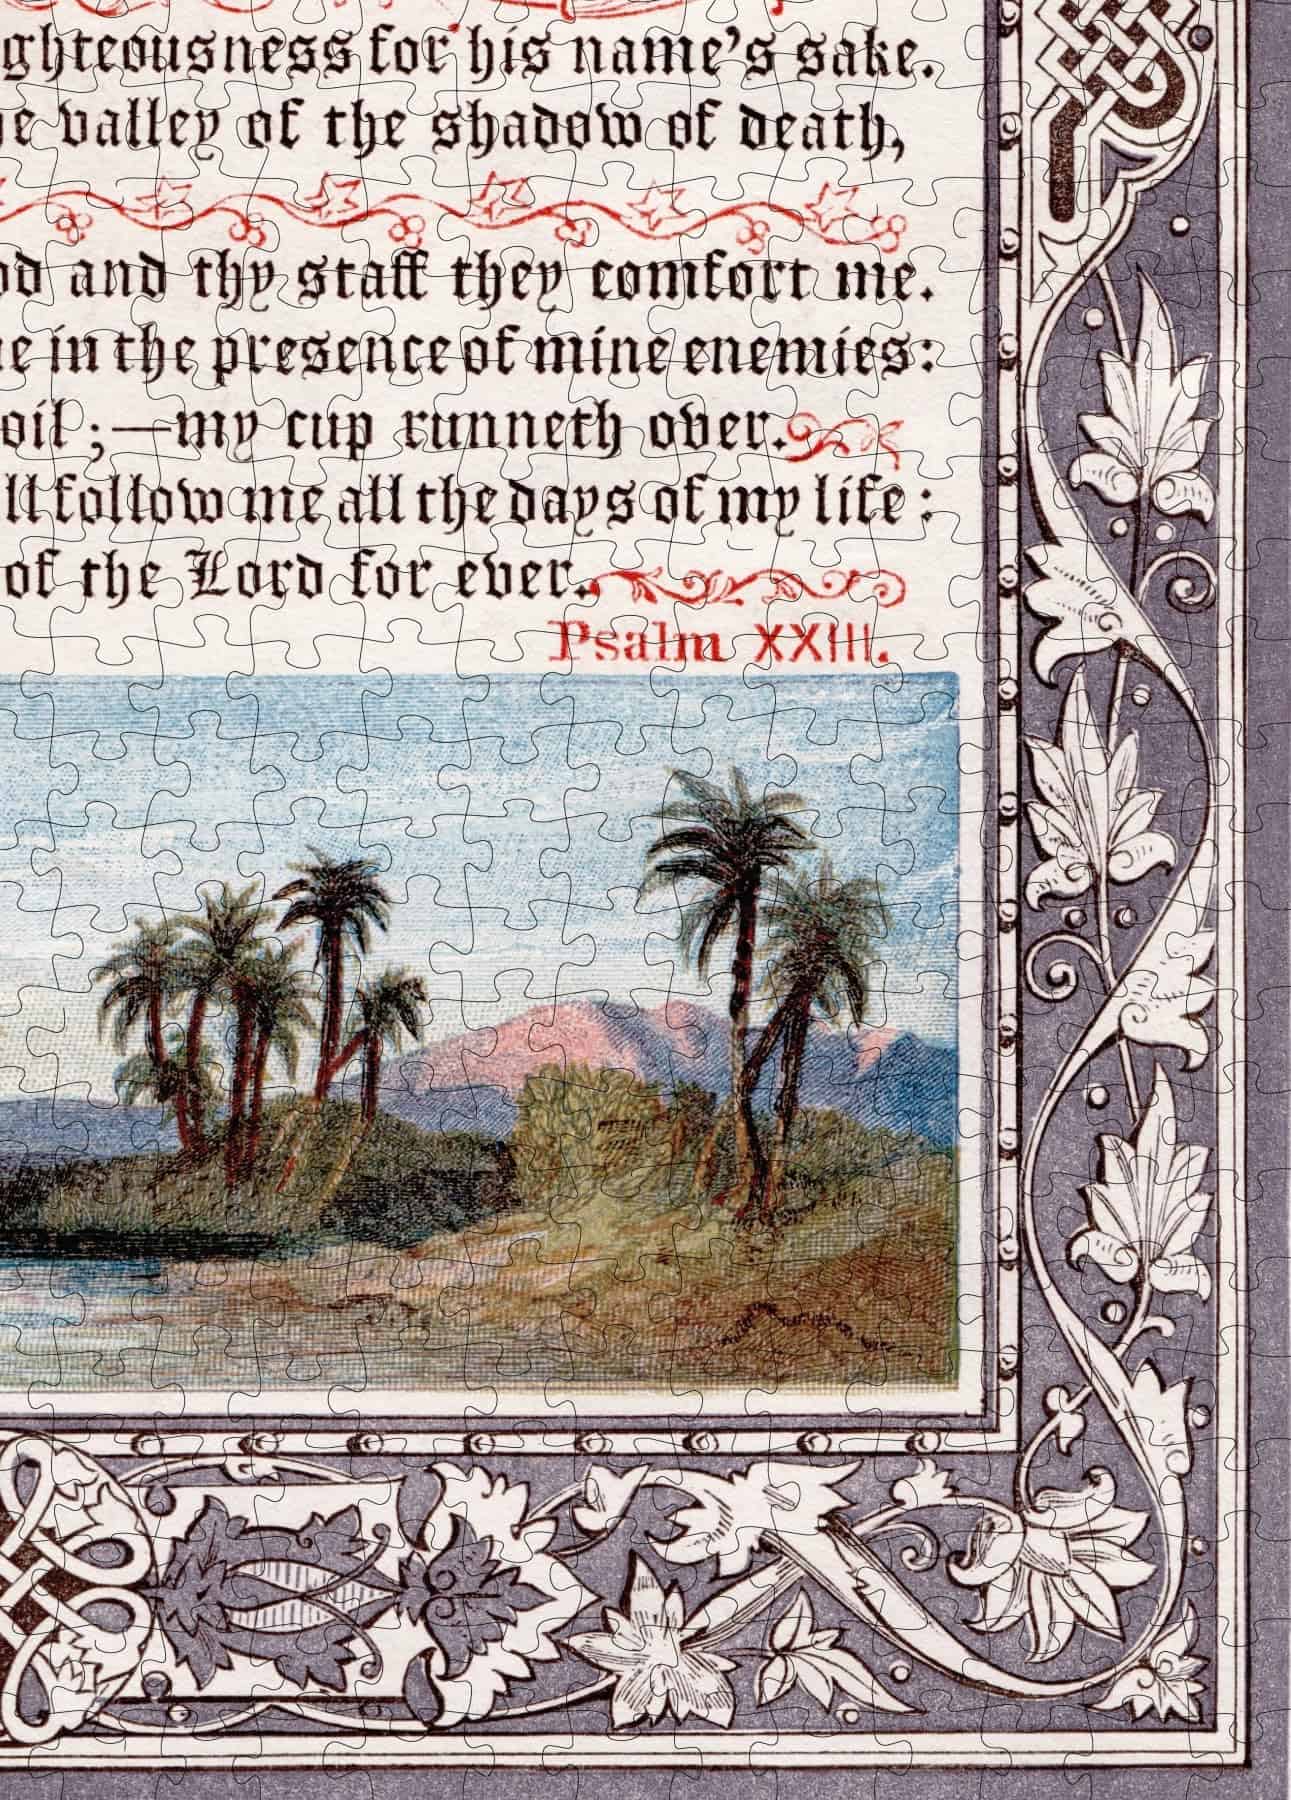 ghteousness for his name's sake.
e valley of the shadow of death,
od and thy staff they comfort me.
e in the presence of mine enemies:
oil;—my cup runneth over.
ll follow me all the days of my life:
of the Lord for ever.
Psalm XXIII.